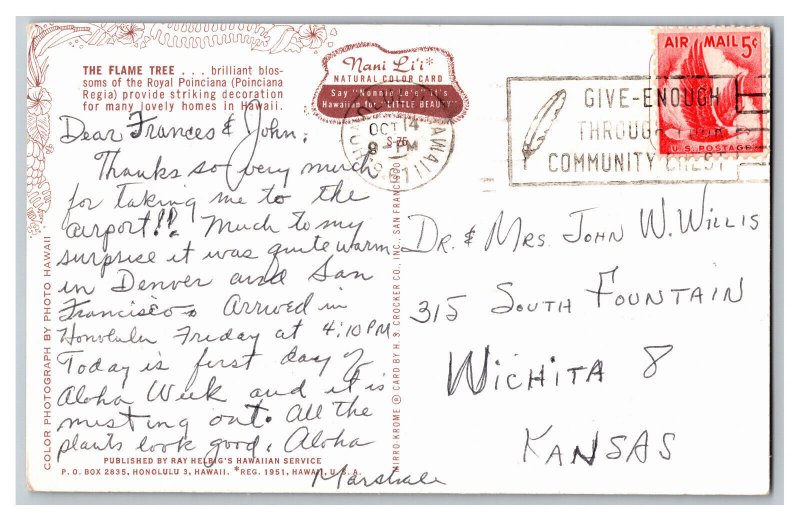 THE FLAME TREE . . . brilliant blos-
soms of the Royal Poinciana (Poinciana
Regia) provide striking decoration
for many lovely homes in Hawaii.
Nani Li'i*
NATURAL COLOR CARD
Say "Nonnie Le'e" It's
Hawaiian for "LITTLE BEAUTY"
Dear Frances & John,
Thanks so very much
for taking me to the
airport!! Much to my
surprise it was quite warm
in Denver and San
Francisco. Arrived in
Honolulu Friday at 4:10 PM
Today is first day of
Aloha Week and it is
misting out. All the
plants look good. Aloha
Marshall
PUBLISHED BY RAY HELBIG'S HAWAIIAN SERVICE
P.O. BOX 2835, HONOLULU 3, HAWAII. *REG. 1951, HAWAII, U.S.A.
COLOR PHOTOGRAPH BY PHOTO HAWAII
MIRRO-KROME ® CARD BY H. S. CROCKER CO., INC., SAN FRANCISCO
OCT 14
PM
HAWAII
GIVE-ENOUGH
THROUGH YOUR
COMMUNITY CHEST
AIR MAIL 5¢
U.S. POSTAGE
DR. & MRS. JOHN W. WILLIS
315 SOUTH FOUNTAIN
WICHITA 8
KANSAS